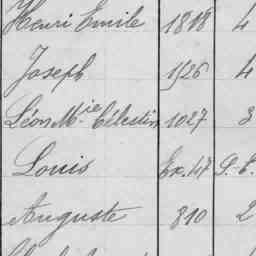 Henri Emile 1818 4
Joseph 1526 4
Léon Mie Célestin 1027 3
Louis Ex. 47 P.-l.
Auguste 810 2